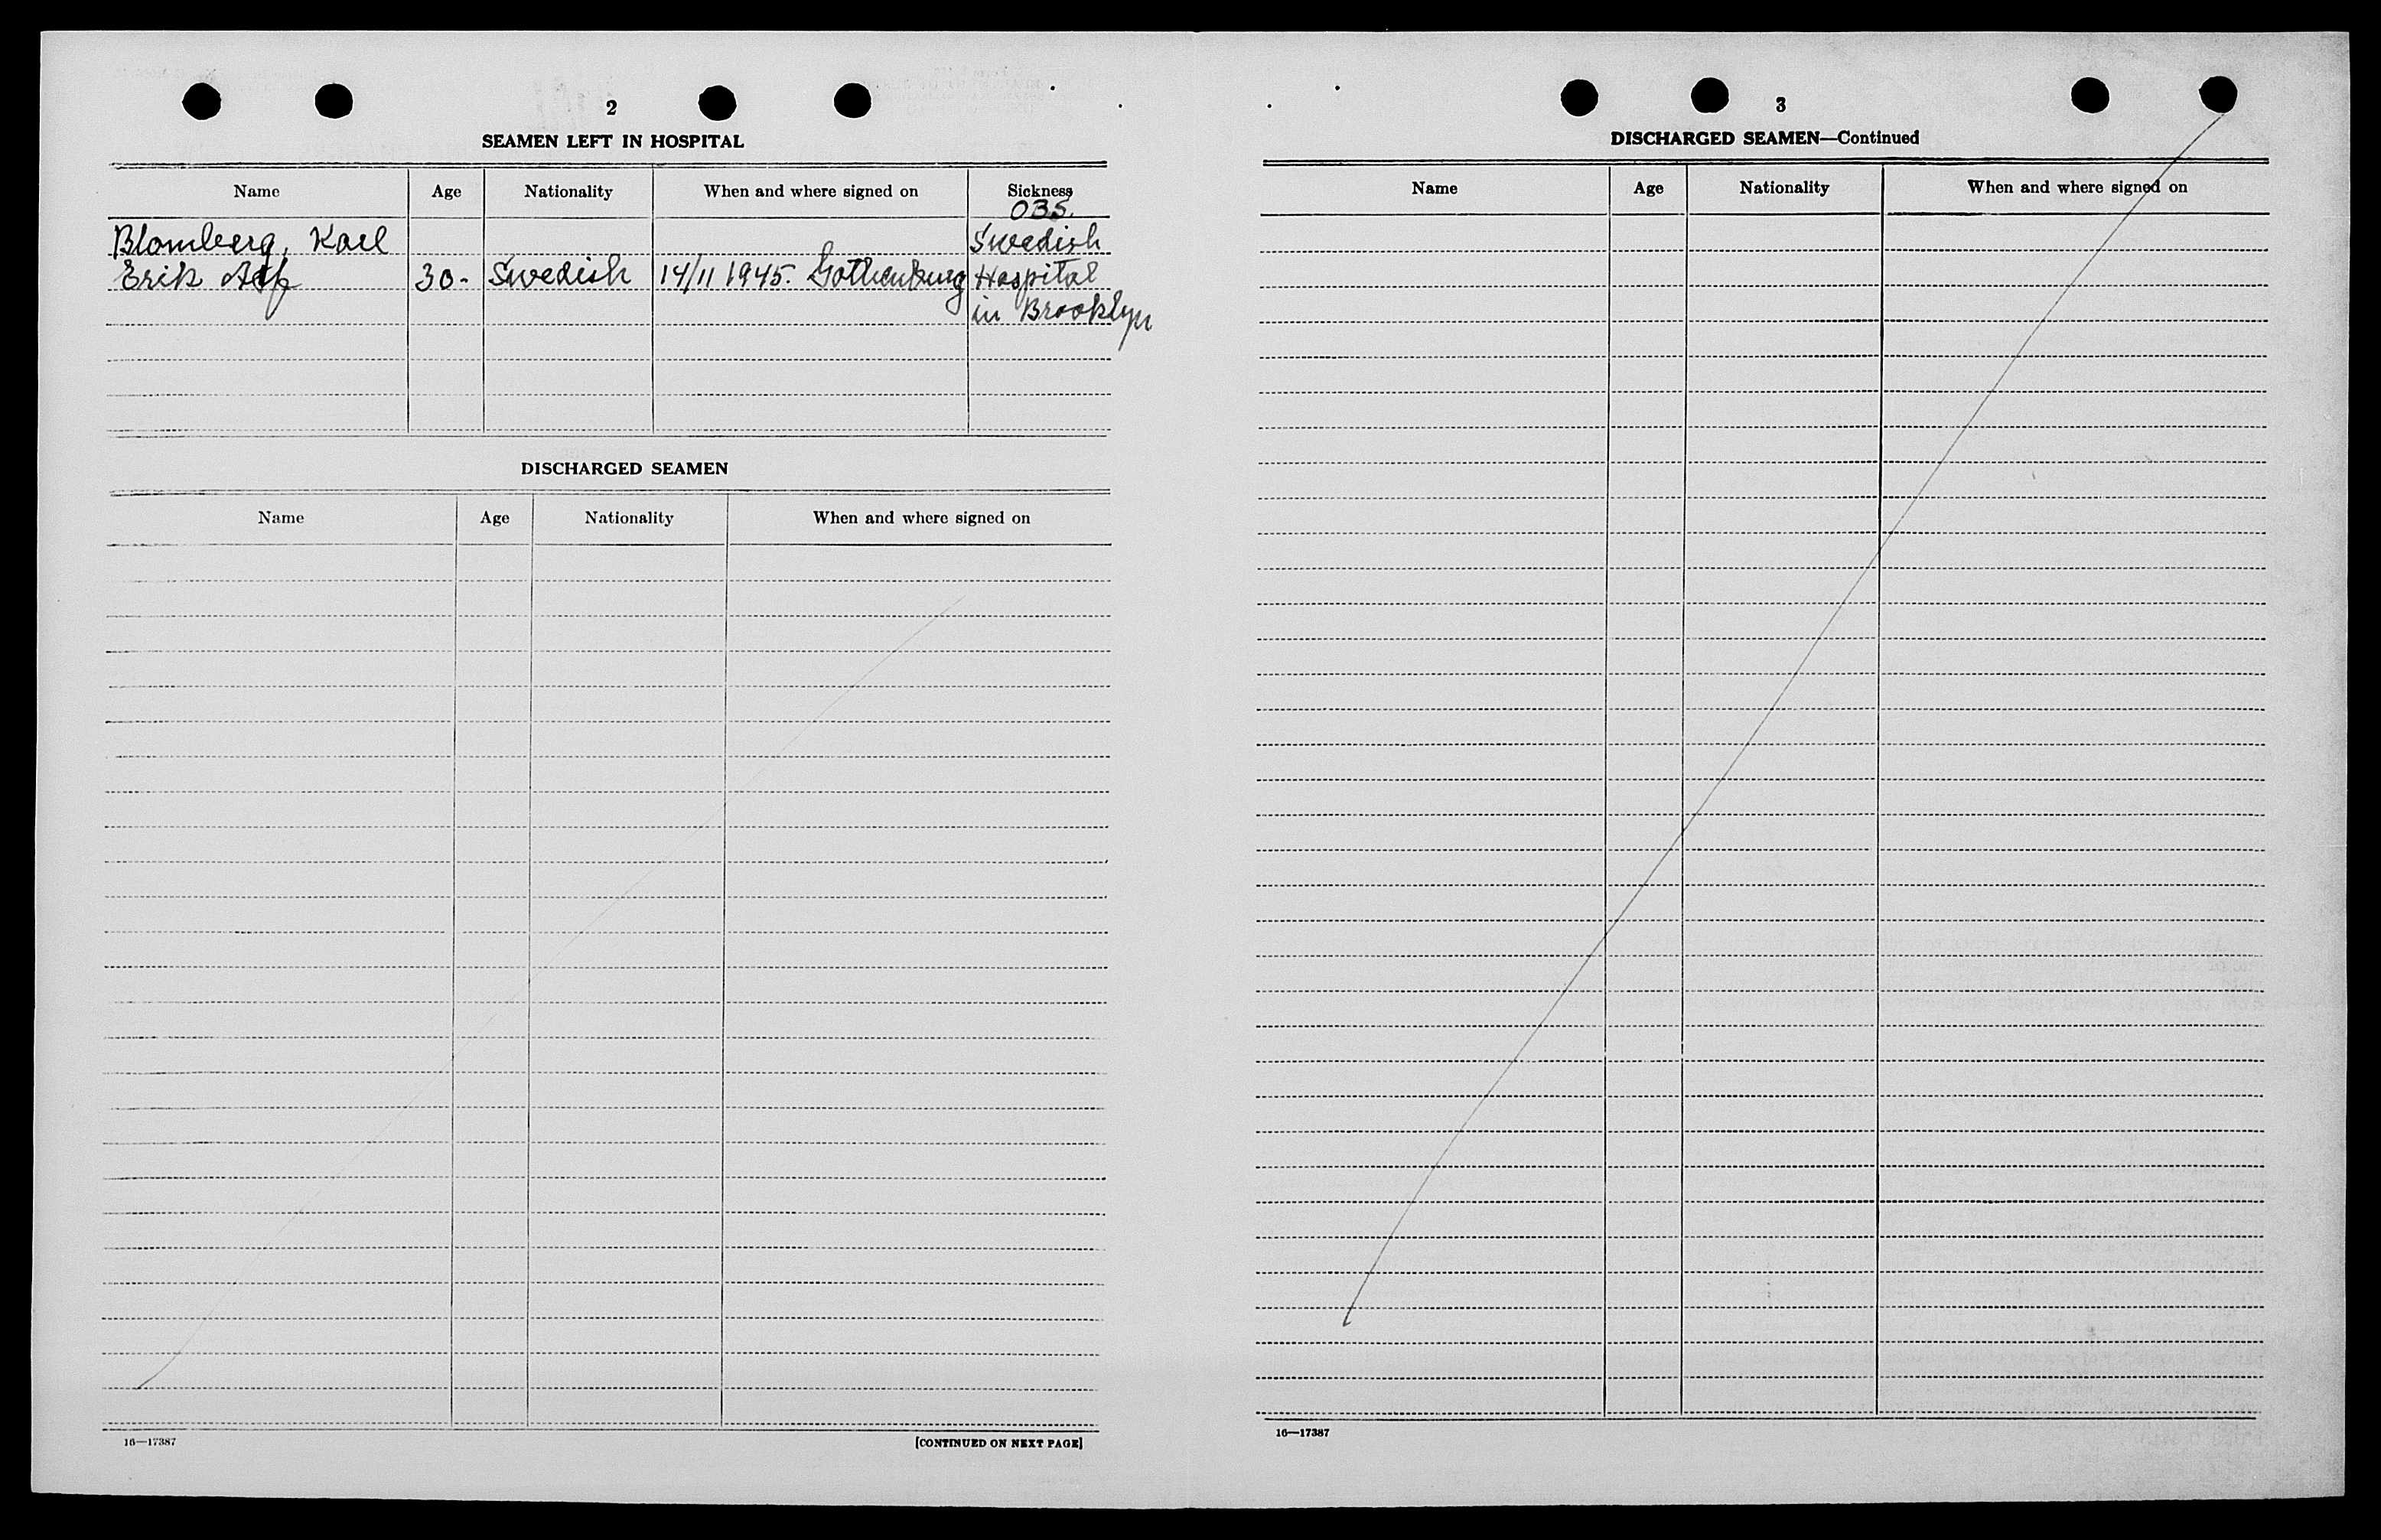 2
SEAMEN LEFT IN HOSPITAL
Name Age Nationality When and where signed on Sickness
OBS.
Blomberg, Karl Swedish
Erik 30- Swedish 14/11 1945. Gothenburg Hospital
in Brooklyn
DISCHARGED SEAMEN
Name Age Nationality When and where signed on
16—17387 [CONTINUED ON NEXT PAGE]
3
DISCHARGED SEAMEN—Continued
Name Age Nationality When and where signed on
16—17387